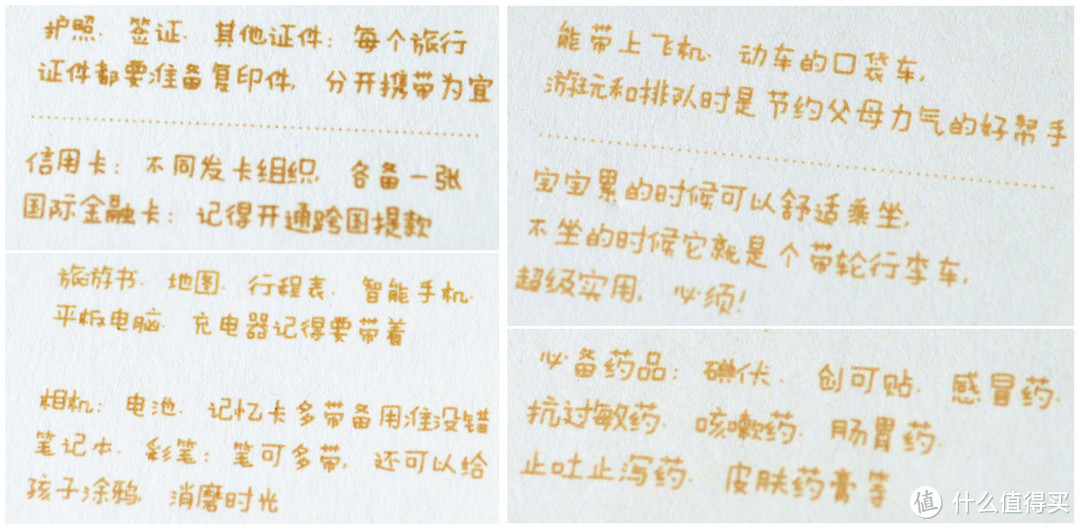 护照、签证、其他证件：每个旅行
证件都要准备复印件，分开携带为宜
信用卡：不同发卡组织，各备一张
国际金融卡：记得开通跨国提款
旅游书、地图、行程表、智能手机、
平板电脑、充电器记得要带着
相机：电池、记忆卡多带备用准没错
笔记本、彩笔：笔可多带，还可以给
孩子涂鸦，消磨时光
能带上飞机、动车的口袋车，
游玩和排队时是节约父母力气的好帮手
宝宝累的时候可以舒适乘坐，
不坐的时候它就是个带轮行李车，
超级实用，必须！
必备药品：碘伏、创可贴、感冒药、
抗过敏药、咳嗽药、肠胃药、
止吐止泻药、皮肤药膏等
值 什么值得买